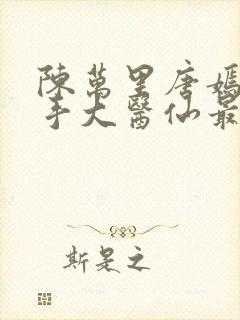 陳萬里唐嫣
手大醫仙最
斯是之